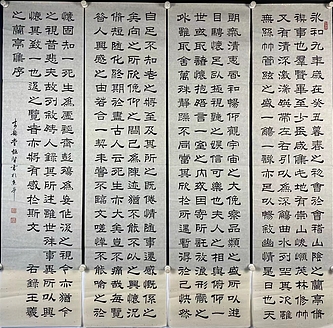 永和九年歲在癸丑暮春之初會於會稽山陰之蘭亭脩
禊事也羣賢畢至少長咸集此地有崇山峻領茂林脩竹
又有清流激湍映帶左右引以為流觴曲水列坐其次雖
無絲竹管弦之盛一觴一詠亦足以暢敘幽情是日也天
朗氣清惠風和暢仰觀宇宙之大俯察品類之盛所以遊
目騁懷足以極視聽之娛信可樂也夫人之相與俯仰一
世或取諸懷抱悟言一室之內或因寄所託放浪形骸之
外雖趣舍萬殊靜躁不同當其欣於所遇暫得於己快然
自足不知老之將至及其所之既倦情隨事遷感慨係之
矣向之所欣俛仰之間已為陳迹猶不能不以之興懷況
脩短隨化終期於盡古人云死生亦大矣豈不痛哉每覽
昔人興感之由若合一契未嘗不臨文嗟悼不能喻之於
懷固知一死生為虛誕齊彭殤為妄作後之視今亦猶今
之視昔悲夫故列敘時人錄其所述雖世殊事異所以興
懷其致一也後之覽者亦將有感於斯文 右錄王羲
之蘭亭集序